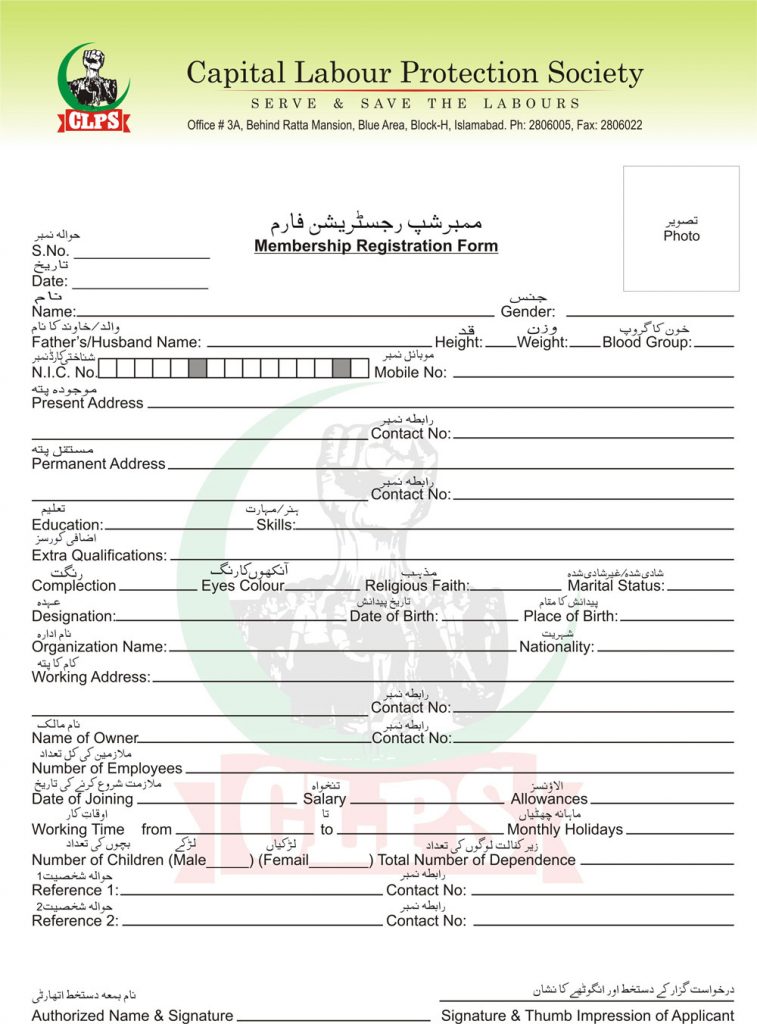 CLPS
Capital Labour Protection Society
SERVE & SAVE THE LABOURS
Office # 3A, Behind Ratta Mansion, Blue Area, Block-H, Islamabad. Ph: 2806005, Fax: 2806022
تصویر
Photo
ممبرشپ رجسٹریشن فارم
Membership Registration Form
حوالہ نمبر
S.No.
تاریخ
Date:
نام جنس
Name: Gender:
والد/خاوند کا نام قد وزن خون کا گروپ
Father's/Husband Name: Height: Weight: Blood Group:
شناختی کارڈ نمبر موبائل نمبر
N.I.C. No. Mobile No:
موجودہ پتہ
Present Address
رابطہ نمبر
Contact No:
مستقل پتہ
Permanent Address
رابطہ نمبر
Contact No:
تعلیم ہنر/مہارت
Education: Skills:
اضافی کورسز
Extra Qualifications:
رنگت آنکھوں کا رنگ مذہب شادی شدہ/غیر شادی شدہ
Complection Eyes Colour Religious Faith: Marital Status:
عہدہ تاریخ پیدائش پیدائش کا مقام
Designation: Date of Birth: Place of Birth:
نام ادارہ شہریت
Organization Name: Nationality:
کام کا پتہ
Working Address:
رابطہ نمبر
Contact No:
نام مالک رابطہ نمبر
Name of Owner Contact No:
ملازمین کی کل تعداد
Number of Employees
ملازمت شروع کرنے کی تاریخ تنخواہ الاؤنسز
Date of Joining Salary Allowances
اوقات کار تا ماہانہ چھٹیاں
Working Time from to Monthly Holidays
بچوں کی تعداد لڑکے لڑکیاں زیر کفالت لوگوں کی تعداد
Number of Children (Male ) (Femail ) Total Number of Dependence
حوالہ شخصیت 1 رابطہ نمبر
Reference 1: Contact No:
حوالہ شخصیت 2 رابطہ نمبر
Reference 2: Contact No:
نام بمعہ دستخط اتھارٹی درخواست گزار کے دستخط اور انگوٹھے کا نشان
Authorized Name & Signature Signature & Thumb Impression of Applicant
CLPS